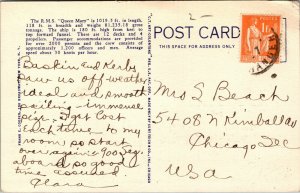 The R.M.S. "Queen Mary" is 1019.5 ft. in length,
118 ft. in breadth and weighs 81,235.18 gross
tonnage. The ship is 180 ft. high from keel to
top forward funnel. There are 12 decks and 4
propellers. Passenger accommodations are provided
for over 2000 persons and the crew consists of
approximately 1,200 officers and men. Average
speed about 30 knots per hour.
POST CARD
THIS SPACE FOR ADDRESS ONLY
Baskin and Kerby
saw us off weather
ideal and smooth
sailing - immense
pier. I get lost
each time to my
room so start
over again. 900 Seg
aboard so good
time assured
Clara
Mrs S Beach
5408 N Kimball av
Chicago Ill
USA